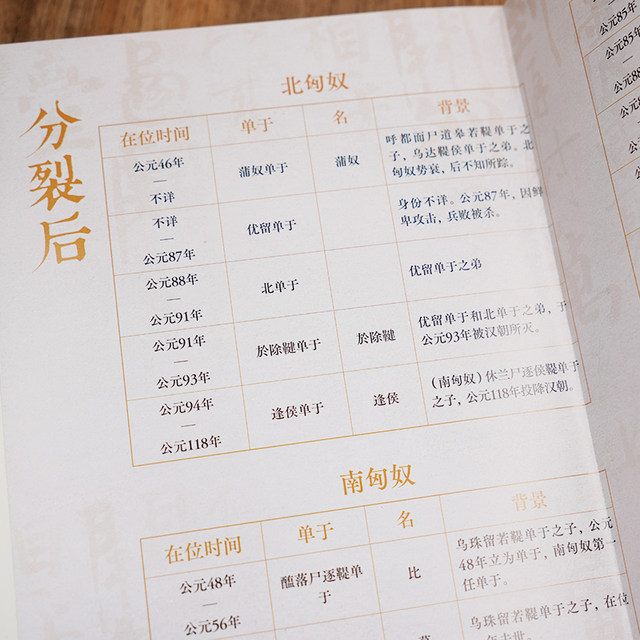 分裂后
北匈奴
在位时间 单于 名 背景
公元46年
—
不详
蒲奴单于
蒲奴
呼都而尸道皋若鞮单于之
子，乌达鞮侯单于之弟。北
匈奴势衰，后不知所踪。
不详
—
公元87年
优留单于
身份不详。公元87年，因鲜
卑攻击，兵败被杀。
公元88年
—
公元91年
北单于
优留单于之弟
公元91年
—
公元93年
於除鞬单于
於除鞬
优留单于和北单于之弟，于
公元93年被汉朝所灭。
公元94年
—
公元118年
逢侯单于
逢侯
（南匈奴）休兰尸逐侯鞮单于
之子，公元118年投降汉朝。
南匈奴
在位时间 单于 名 背景
公元48年
—
公元56年
醢落尸逐鞮单
于
比
乌珠留若鞮单于之子，公元
48年立为单于，南匈奴第一
任单于。
乌珠留若鞮单于之子，在位
公元85年
—
公元85年
公元88
公元
公元